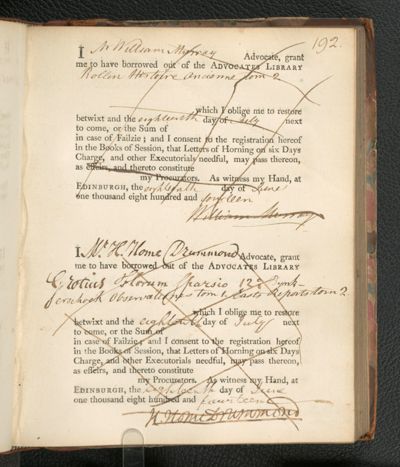 192.
I Mr William Murray Advocate, grant
me to have borrowed out of the ADVOCATES LIBRARY
Rollin Histoire Ancienne tom 2
which I oblige me to restore
betwixt and the eighteenth day of July next
to come, or the Sum of
in case of Failzie; and I consent to the registration hereof
in the Books of Session, that Letters of Horning on six Days
Charge, and other Executorials needful, may pass thereon,
as effeirs, and thereto constitute
my Procurators. As witness my Hand, at
EDINBURGH, the eighteenth day of June
one thousand eight hundred and fourteen
William Murray
I, Mr. H. Home Drummond Advocate, grant
me to have borrowed out of the ADVOCATES LIBRARY
Grotius Florum Sparsio 12o Bynk-
ershoek Observationes tom 2 East's Reports tom 2
which I oblige me to restore
betwixt and the eighteenth day of July next
to come, or the Sum of
in case of Failzie; and I consent to the registration hereof
in the Books of Session, that Letters of Horning on six Days
Charge, and other Executorials needful, may pass thereon,
as effeirs, and thereto constitute
my Procurators. As witness my Hand, at
EDINBURGH, the eighteenth day of June
one thousand eight hundred and fourteen
H. Home Drummond